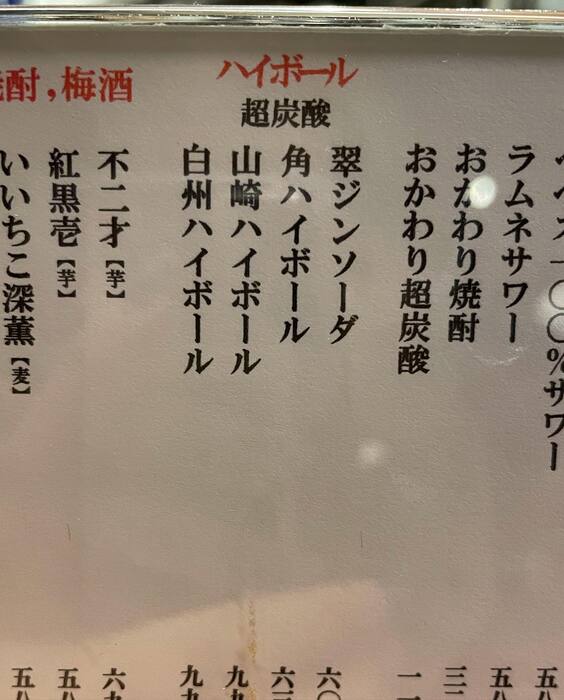 〇〇%サワー
ラムネサワー
おかわり焼酎
おかわり超炭酸
ハイボール
超炭酸
翠ジンソーダ
角ハイボール
山崎ハイボール
白州ハイボール
酎,梅酒
不二才【芋】
紅黒壱【芋】
いいちこ深薫【麦】
五八
五八
三
一
六〇
六三
九九
九九
六九
五八
五八